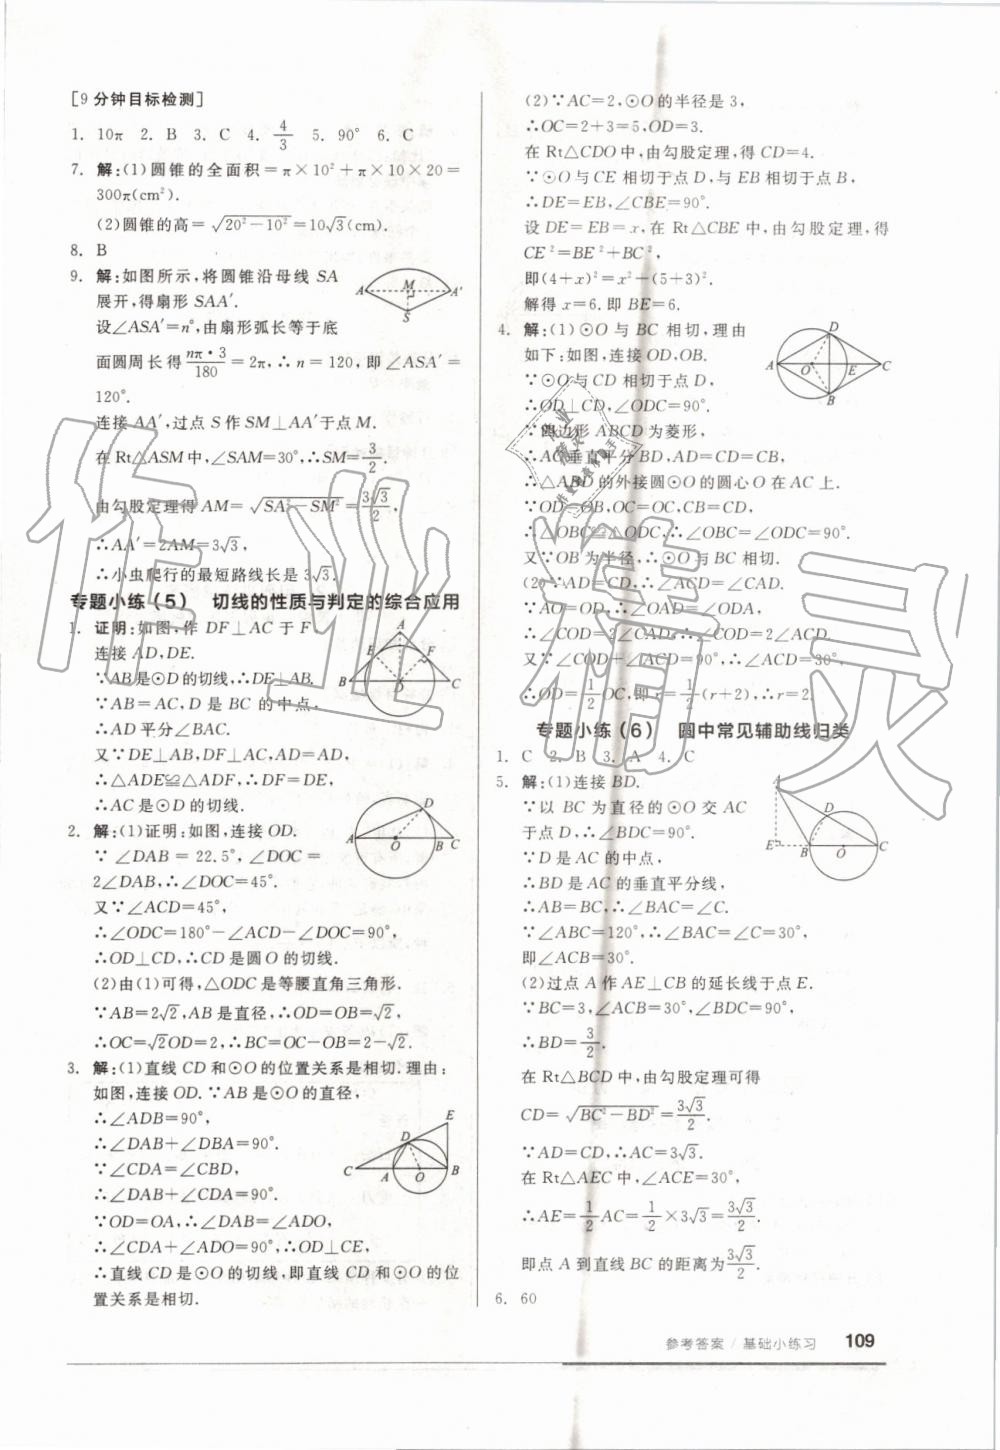 [9分钟目标检测]
1. 10π 2. B 3. C 4. 4/3 5. 90° 6. C
7. 解:(1)圆锥的全面积=π×10²+π×10×20=
300π(cm²).
(2)圆锥的高=√(20²-10²)=10√3(cm).
8. B
9. 解:如图所示,将圆锥沿母线 SA
展开,得扇形 SAA′.
设∠ASA′=n°,由扇形弧长等于底
面圆周长得 nπ·3/180=2π,∴n=120,即∠ASA′=
120°.
连接 AA′,过点 S 作 SM⊥AA′于点 M.
在 Rt△ASM 中,∠SAM=30°,∴SM=3/2.
由勾股定理得 AM=√(SA²-SM²)=3√3/2,
∴AA′=2AM=3√3,
∴小虫爬行的最短路线长是 3√3.
A M A′ S
专题小练(5) 切线的性质与判定的综合应用
1. 证明:如图,作 DF⊥AC 于 F,
连接 AD,DE.
∵AB 是⊙D 的切线,∴DE⊥AB.
∵AB=AC,D 是 BC 的中点,
∴AD 平分∠BAC.
又∵DE⊥AB,DF⊥AC,AD=AD,
∴△ADE≌△ADF,∴DF=DE,
∴AC 是⊙D 的切线.
A E F B D C
2. 解:(1)证明:如图,连接 OD.
∵∠DAB=22.5°,∠DOC=
2∠DAB,∴∠DOC=45°.
又∵∠ACD=45°,
∴∠ODC=180°-∠ACD-∠DOC=90°,
∴OD⊥CD,∴CD 是圆 O 的切线.
(2)由(1)可得,△ODC 是等腰直角三角形.
∵AB=2√2,AB 是直径,∴OD=OB=√2,
∴OC=√2OD=2,∴BC=OC-OB=2-√2.
D A O B C
3. 解:(1)直线 CD 和⊙O 的位置关系是相切.理由:
如图,连接 OD.∵AB 是⊙O 的直径,
∴∠ADB=90°,
∴∠DAB+∠DBA=90°.
∵∠CDA=∠CBD,
∴∠DAB+∠CDA=90°.
∵OD=OA,∴∠DAB=∠ADO,
∴∠CDA+∠ADO=90°,∴OD⊥CE,
∴直线 CD 是⊙O 的切线,即直线 CD 和⊙O 的位
置关系是相切.
E D C A O B
(2)∵AC=2,⊙O 的半径是 3,
∴OC=2+3=5,OD=3.
在 Rt△CDO 中,由勾股定理,得 CD=4.
∵⊙O 与 CE 相切于点 D,与 EB 相切于点 B,
∴DE=EB,∠CBE=90°.
设 DE=EB=x,在 Rt△CBE 中,由勾股定理,得
CE²=BE²+BC²,
即(4+x)²=x²+(5+3)².
解得 x=6.即 BE=6.
4. 解:(1)⊙O 与 BC 相切,理由
如下:如图,连接 OD,OB.
∵⊙O 与 CD 相切于点 D,
∴OD⊥CD,∠ODC=90°.
∵四边形 ABCD 为菱形,
∴AC 垂直平分 BD,AD=CD=CB,
∴△ABD 的外接圆⊙O 的圆心 O 在 AC 上.
∵OD=OB,OC=OC,CB=CD,
∴△OBC≌△ODC,∴∠OBC=∠ODC=90°.
又∵OB 为半径,∴⊙O 与 BC 相切.
(2)∵AD=CD,∴∠ACD=∠CAD.
∵AO=OD,∴∠OAD=∠ODA,
∴∠COD=2∠CAD,∴∠COD=2∠ACD.
又∵∠COD+∠ACD=90°,∴∠ACD=30°,
∴OD=1/2OC,即 r=1/2(r+2),∴r=2.
D A O E C B
专题小练(6) 圆中常见辅助线归类
1. C 2. B 3. A 4. C
5. 解:(1)连接 BD.
∵以 BC 为直径的⊙O 交 AC
于点 D,∴∠BDC=90°.
∵D 是 AC 的中点,
∴BD 是 AC 的垂直平分线,
∴AB=BC,∴∠BAC=∠C.
∵∠ABC=120°,∴∠BAC=∠C=30°,
即∠ACB=30°.
(2)过点 A 作 AE⊥CB 的延长线于点 E.
∵BC=3,∠ACB=30°,∠BDC=90°,
∴BD=3/2.
在 Rt△BCD 中,由勾股定理可得
CD=√(BC²-BD²)=3√3/2.
∵AD=CD,∴AC=3√3.
在 Rt△AEC 中,∠ACE=30°,
∴AE=1/2AC=1/2×3√3=3√3/2.
即点 A 到直线 BC 的距离为 3√3/2.
A D E B O C
6. 60
参考答案/基础小练习 109
作业精灵